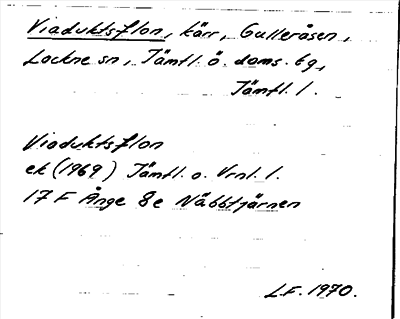 Viaduktsflon, kärr, Gulleråsen,
Lockne sn, Jämtl. ö. doms. tg,
Jämtl. l.
Viaduktsflon
ek (1969) Jämtl. o. Vrnl. l.
17 F Ånge 8e Näbbtjärnen
L.F. 1970.